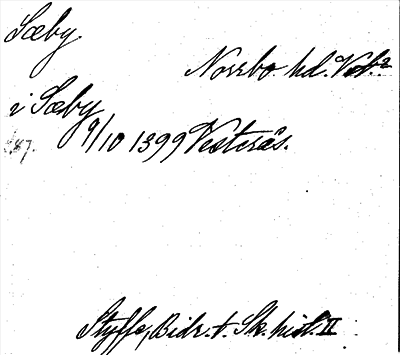 Sæby.
Norrbo hd. Vstm.
i Sæby
9/10 1399 Vesterås.
Styffe, Bidr. t. Sk. hist. II